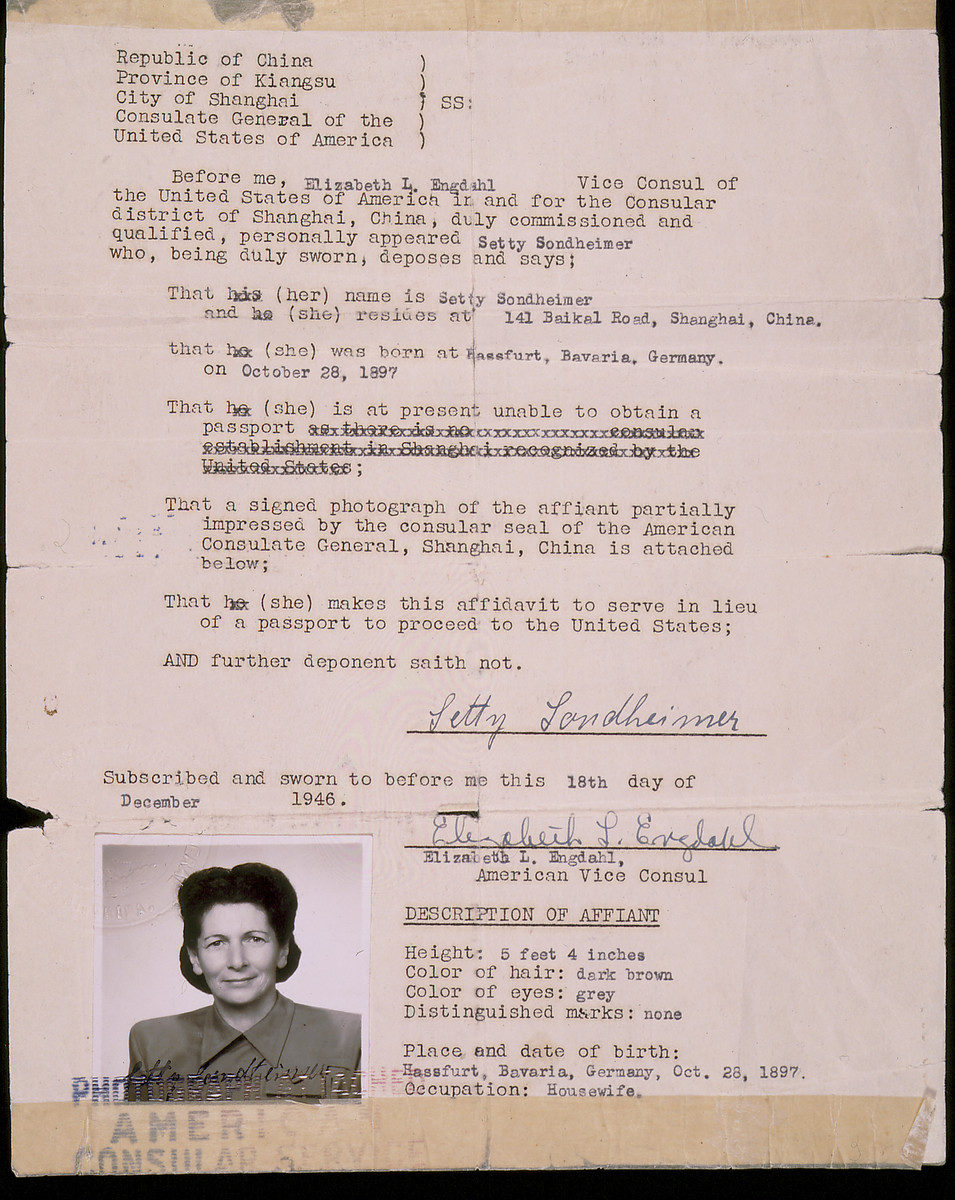 Republic of China )
Province of Kiangsu )
City of Shanghai ) SS:
Consulate General of the )
United States of America )
Before me, Elizabeth L. Engdahl Vice Consul of
the United States of America in and for the Consular
district of Shanghai, China, duly commissioned and
qualified, personally appeared Setty Sondheimer
who, being duly sworn, deposes and says;
That his (her) name is Setty Sondheimer
and he (she) resides at 141 Baikal Road, Shanghai, China.
that he (she) was born at Hassfurt, Bavaria, Germany.
on October 28, 1897
That he (she) is at present unable to obtain a
passport as there is no consular
establishment in Shanghai recognized by the
United States;
That a signed photograph of the affiant partially
impressed by the consular seal of the American
Consulate General, Shanghai, China is attached
below;
That he (she) makes this affidavit to serve in lieu
of a passport to proceed to the United States;
AND further deponent saith not.
Setty Sondheimer
Subscribed and sworn to before me this 18th day of
December 1946.
Elizabeth L. Engdahl
Elizabeth L. Engdahl,
American Vice Consul
DESCRIPTION OF AFFIANT
Height: 5 feet 4 inches
Color of hair: dark brown
Color of eyes: grey
Distinguished marks: none
Place and date of birth:
Hassfurt, Bavaria, Germany, Oct. 28, 1897.
Occupation: Housewife.
Setty Sondheimer
PHOTOGRAPH ATTACHED
AMERICAN
CONSULAR SERVICE